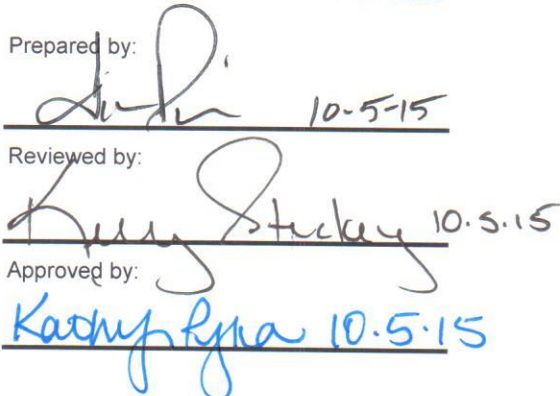 Prepared by:
10-5-15
Reviewed by:
Kelly Stuckey 10.5.15
Approved by:
Kathy 10.5.15